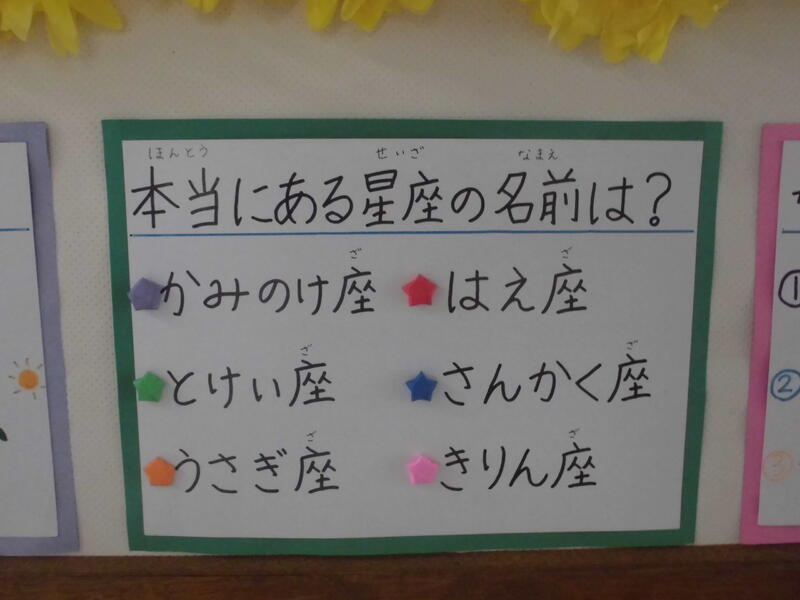 ほんとう せいざ なまえ
本当にある星座の名前は?
ざ ざ
かみのけ座 はえ座
ざ ざ
とけい座 さんかく座
ざ ざ
うさぎ座 きりん座
①
②
③